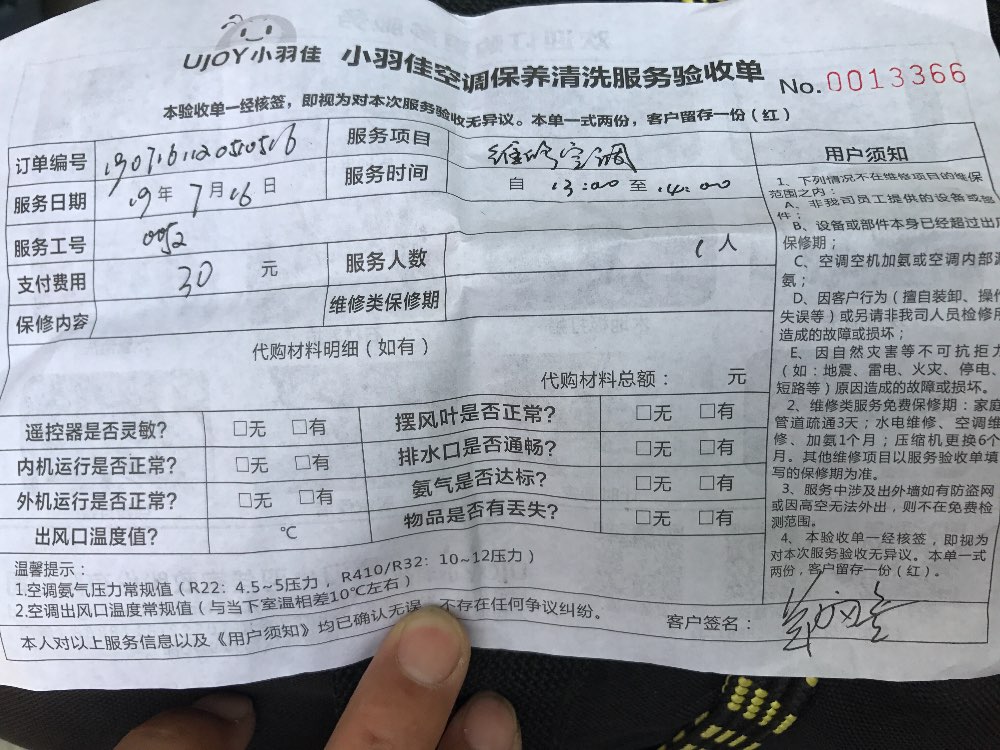 UJOY小羽佳 小羽佳空调保养清洗服务验收单 No.0013366
本验收单一经核签，即视为对本次服务验收无异议。本单一式两份，客户留存一份（红）
订单编号 服务项目 维修空调
服务日期 19年7月16日 服务时间 自 13:00 至 14:00
服务工号 0052
支付费用 30 元 服务人数 1人
保修内容 维修类保修期
代购材料明细（如有）
代购材料总额： 元
遥控器是否灵敏？ □无 □有 摆风叶是否正常？ □无 □有
内机运行是否正常？ □无 □有 排水口是否通畅？ □无 □有
外机运行是否正常？ □无 □有 氨气是否达标？ □无 □有
出风口温度值？ ℃ 物品是否有丢失？ □无 □有
温馨提示：
1.空调氨气压力常规值（R22：4.5~5压力，R410/R32：10~12压力）
2.空调出风口温度常规值（与当下室温相差10℃左右）
本人对以上服务信息以及《用户须知》均已确认无误，不存在任何争议纠纷。
客户签名：
用户须知
1、下列情况不在维修项目的维保
范围之内：
A、非我司员工提供的设备或部
件；
B、设备或部件本身已经超过出厂
保修期；
C、空调空机加氨或空调内部漏
氨；
D、因客户行为（擅自装卸、操作
失误等）或另请非我司人员检修所
造成的故障或损坏；
E、因自然灾害等不可抗拒力
（如：地震、雷电、火灾、停电、
短路等）原因造成的故障或损坏。
2、维修类服务免费保修期：家庭
管道疏通3天；水电维修、空调维
修、加氨1个月；压缩机更换6个
月。其他维修项目以服务验收单填
写的保修期为准。
3、服务中涉及出外墙如有防盗网
或因高空无法外出，则不在免费检
测范围。
4、本验收单一经核签，即视为
对本次服务验收无异议。本单一式
两份，客户留存一份（红）。